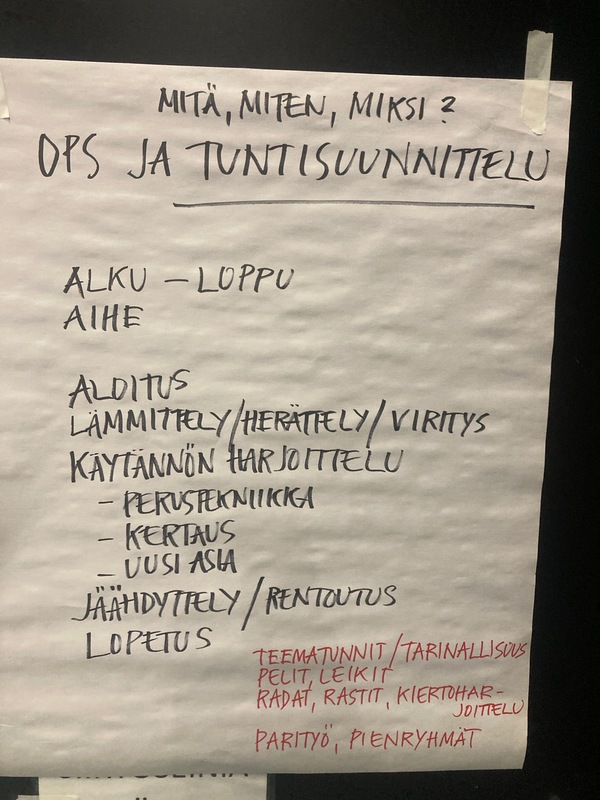 MITÄ, MITEN, MIKSI?
OPS JA TUNTISUUNNITTELU
ALKU – LOPPU
AIHE
ALOITUS
LÄMMITTELY/HERÄTTELY/VIRITYS
KÄYTÄNNÖN HARJOITTELU
– PERUSTEKNIIKKA
– KERTAUS
– UUSI ASIA
JÄÄHDYTTELY/RENTOUTUS
LOPETUS
TEEMATUNNIT/TARINALLISUUS
PELIT, LEIKIT
RADAT, RASTIT, KIERTOHAR-
JOITTELU
PARITYÖ, PIENRYHMÄT